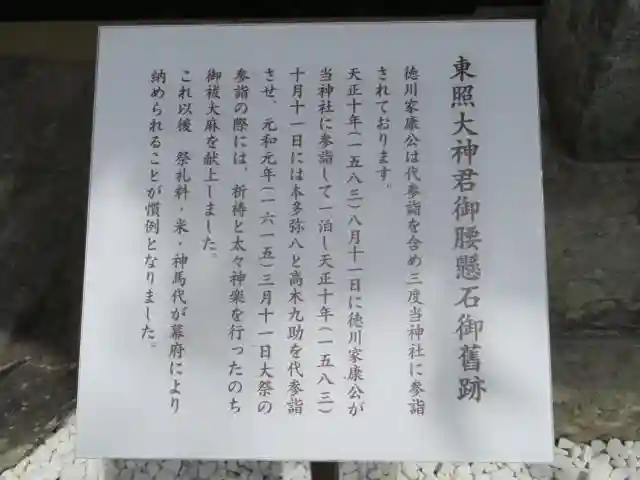 東照大神君御腰懸石御舊跡
徳川家康公は代参詣を含め三度当神社に参詣
されております。
天正十年(一五八三)八月十一日に徳川家康公が
当神社に参詣して一泊し天正十年(一五八三)
十月十一日には本多弥八と高木九助を代参詣
させ、元和元年(一六一五)三月十一日大祭の
参詣の際には、祈祷と太々神楽を行ったのち
御祓大麻を献上しました。
これ以後 祭礼料・米・神馬代が幕府により
納められることが慣例となりました。